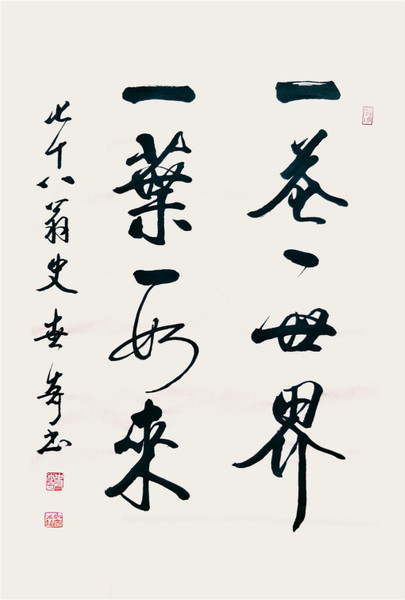 一花一世界
一葉一如來
七十八翁史春书